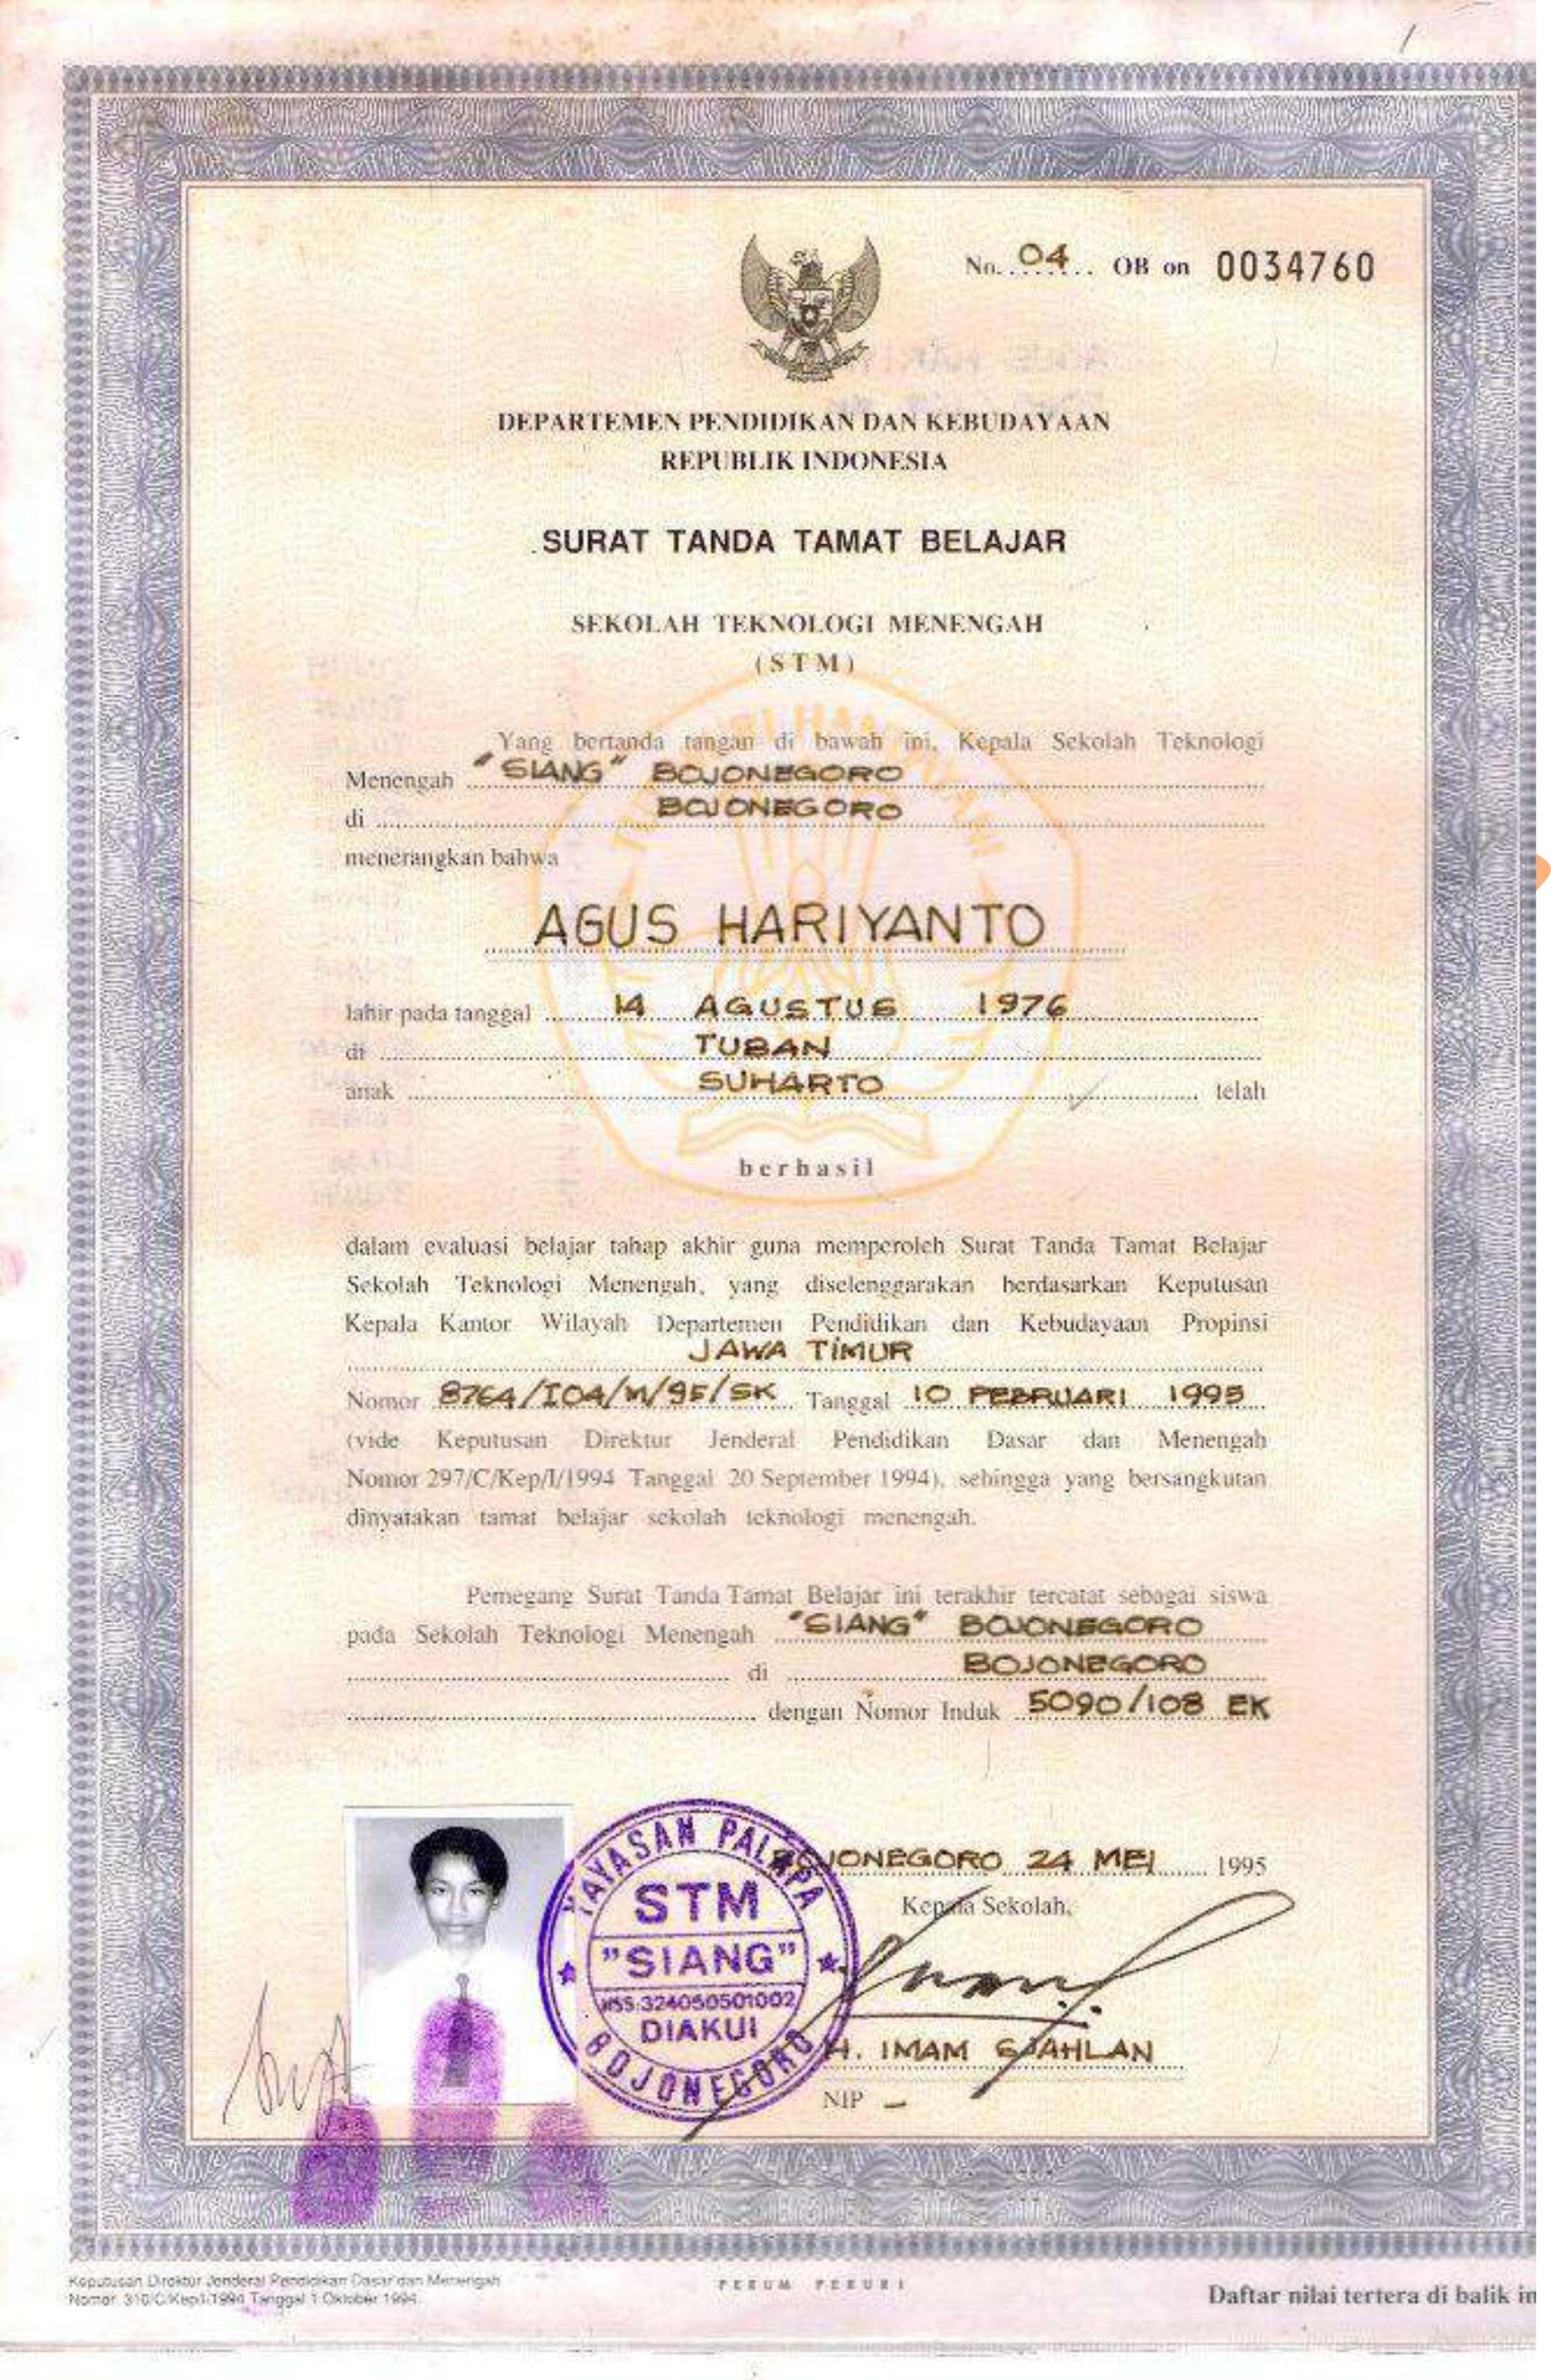 No. 04 OB on 0034760
DEPARTEMEN PENDIDIKAN DAN KEBUDAYAAN
REPUBLIK INDONESIA
SURAT TANDA TAMAT BELAJAR
SEKOLAH TEKNOLOGI MENENGAH
(STM)
Yang bertanda tangan di bawah ini, Kepala Sekolah Teknologi
Menengah "SIANG" BOJONEGORO
di BOJONEGORO
menerangkan bahwa
AGUS HARIYANTO
lahir pada tanggal 14 AGUSTUS 1976
di TUBAN
anak SUHARTO telah
berhasil
dalam evaluasi belajar tahap akhir guna memperoleh Surat Tanda Tamat Belajar
Sekolah Teknologi Menengah, yang diselenggarakan berdasarkan Keputusan
Kepala Kantor Wilayah Departemen Pendidikan dan Kebudayaan Propinsi
JAWA TIMUR
Nomor 8764/I04/M/95/SK Tanggal 10 PEBRUARI 1995
(vide Keputusan Direktur Jenderal Pendidikan Dasar dan Menengah
Nomor 297/C/Kep/I/1994 Tanggal 20 September 1994), sehingga yang bersangkutan
dinyatakan tamat belajar sekolah teknologi menengah.
Pemegang Surat Tanda Tamat Belajar ini terakhir tercatat sebagai siswa
pada Sekolah Teknologi Menengah "SIANG" BOJONEGORO
di BOJONEGORO
dengan Nomor Induk 5090/108 EK
BOJONEGORO 24 MEI 1995
Kepala Sekolah,
YAYASAN PALAPA
STM
"SIANG"
NSS:324050501002
DIAKUI
BOJONEGORO
H. IMAM SJAHLAN
NIP –
Keputusan Direktur Jenderal Pendidikan Dasar dan Menengah
Nomor 310/C/Kep/I/1994 Tanggal 1 Oktober 1994
PERUM PERURI
Daftar nilai tertera di balik in